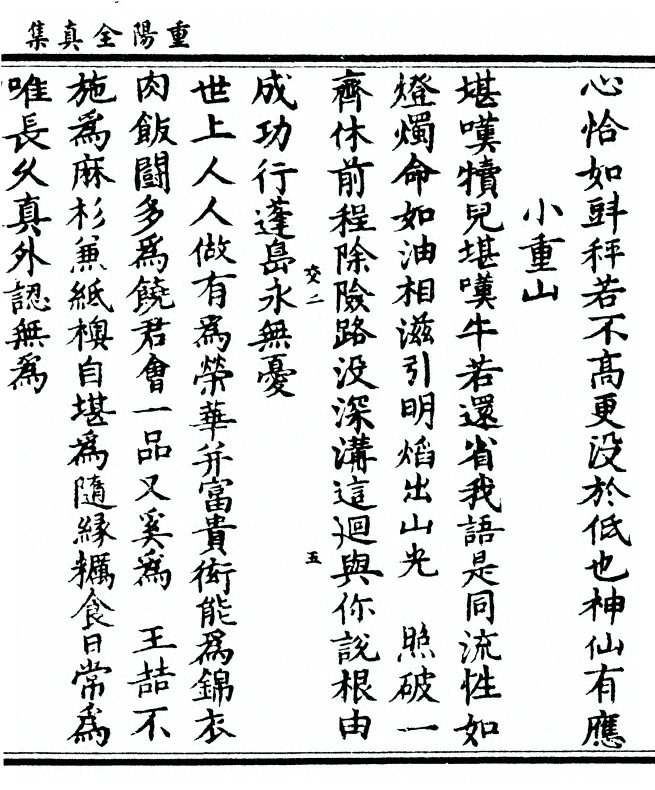 重陽全真集
心恰如㪷秤若不高更没於低也神仙有應
小重山
堪嘆犢兒堪嘆牛若還省我語是同流性如
燈燭命如油相滋引明焰出山光　照破一
齊休前程除險路没深溝這迴與你説根由
交二　五
成功行蓬島永無憂
世上人人做有爲榮華并富貴衒能爲錦衣
肉飯鬬多爲饒君會一品又奚爲　王喆不
施爲麻衫兼紙襖自堪爲隨緣糲食日常爲
唯長久真外認無爲